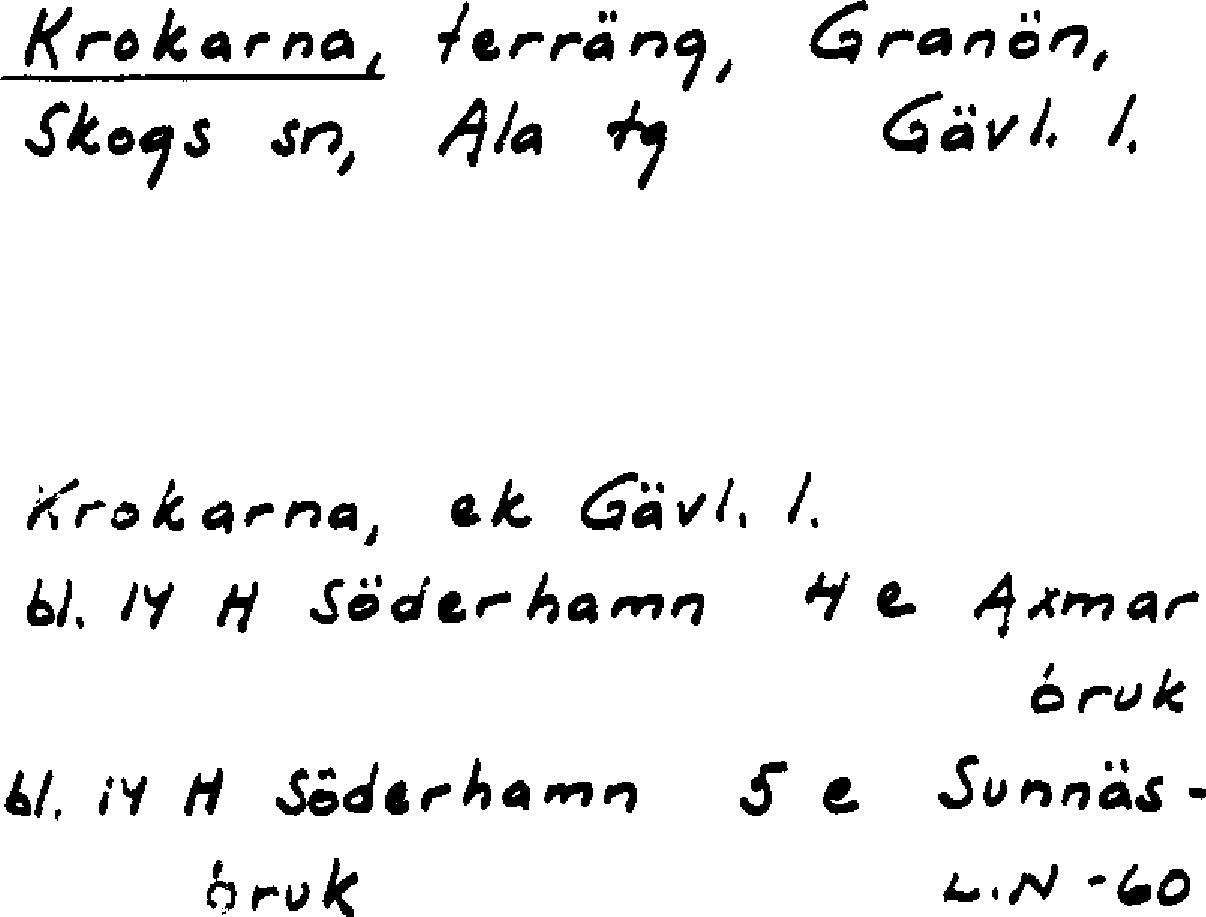 Krokarna, terräng, Granön,
Skogs sn, Ala tg Gävl. l.
Krokarna, ek Gävl. l.
bl. 14 H Söderhamn 4 e Axmar
bruk
bl. 14 H Söderhamn 5 e Sunnäs-
bruk L.N -60